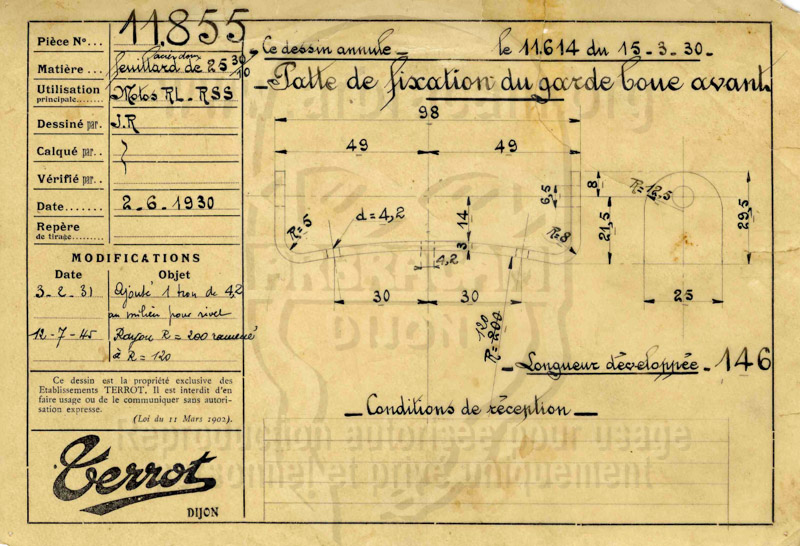 Pièce Nº... 11.855
acier doux
Matière... feuillard de 25 30/10
Utilisation
principale... Motos RL - RSS
Dessiné par. J.R
Calqué par..
Vérifié par..
Date....... 2-6-1930
Repère
de tirage.......
MODIFICATIONS
Date Objet
3-2-31 Ajouté 1 trou de 4,2
au milieu pour rivet
12-7-45 Rayon R = 200 ramené
à R = 120
Ce dessin est la propriété exclusive des
Etablissements TERROT. Il est interdit d'en
faire usage ou de le communiquer sans autori-
sation expresse.
(Loi du 11 Mars 1902).
Terrot
DIJON
Ce dessin annule le 11.614 du 15-3-30
Patte de fixation du garde boue avant
98
49 49
6,5
8
R=12,5
R=5
d=4,2
14
3
4,2
R=8
21,5
29,5
30 30
25
120
R=200
Longueur développée - 146
Conditions de réception
DIJON
Reproduction autorisée pour usage
personnel et privé uniquement